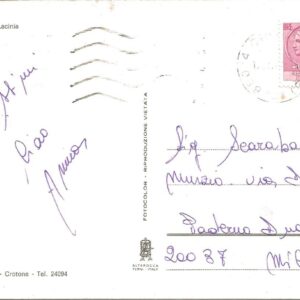 Lacinia
Ciao
FOTOCOLOR - RIPRODUZIONE VIETATA
ALTEROCCA
TERNI - ITALY
- Crotone - Tel. 24094
Sig Scaraba
Murzio via
Paderno Du
20037 Mi